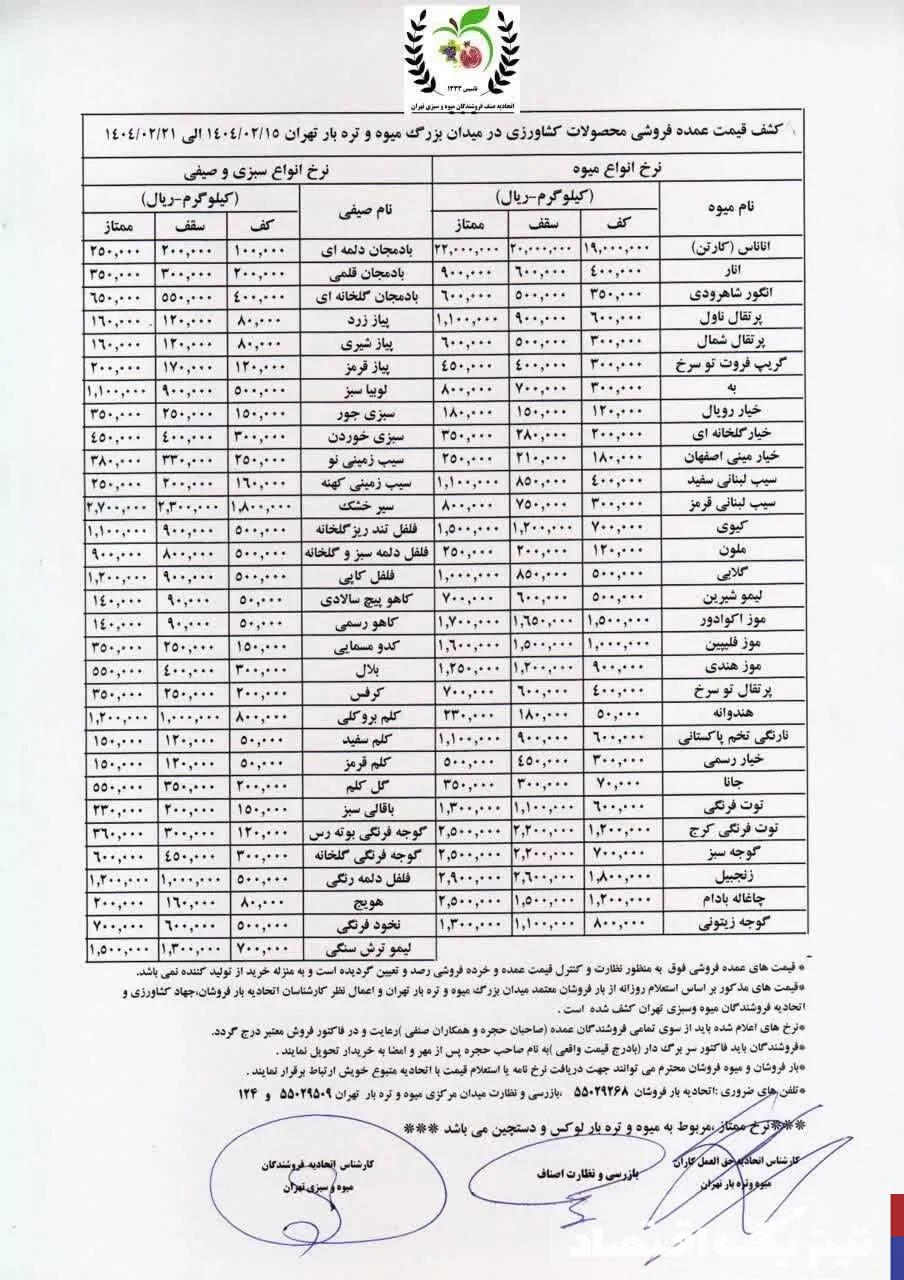 تاسیس ۱۳۳۳
اتحادیه صنف فروشندگان میوه و سبزی تهران
کشف قیمت عمده فروشی محصولات کشاورزی در میدان بزرگ میوه و تره بار تهران ۱۴۰۴/۰۲/۱۵ الی ۱۴۰۴/۰۲/۲۱
نرخ انواع میوه نرخ انواع سبزی و صیفی
نام میوه (کیلوگرم-ریال) نام صیفی (کیلوگرم-ریال)
کف سقف ممتاز کف سقف ممتاز
آناناس (کارتن) ۱۹,۰۰۰,۰۰۰ ۲۰,۰۰۰,۰۰۰ ۲۲,۰۰۰,۰۰۰ بادمجان دلمه ای ۱۰۰,۰۰۰ ۲۰۰,۰۰۰ ۲۵۰,۰۰۰
انار ۴۰۰,۰۰۰ ۶۰۰,۰۰۰ ۹۰۰,۰۰۰ بادمجان قلمی ۲۰۰,۰۰۰ ۳۰۰,۰۰۰ ۳۵۰,۰۰۰
انگور شاهرودی ۳۵۰,۰۰۰ ۵۰۰,۰۰۰ ۶۰۰,۰۰۰ بادمجان گلخانه ای ۴۰۰,۰۰۰ ۵۵۰,۰۰۰ ۶۵۰,۰۰۰
پرتقال ناول ۶۰۰,۰۰۰ ۹۰۰,۰۰۰ ۱,۱۰۰,۰۰۰ پیاز زرد ۸۰,۰۰۰ ۱۲۰,۰۰۰ ۱۶۰,۰۰۰
پرتقال شمال ۳۰۰,۰۰۰ ۵۰۰,۰۰۰ ۶۰۰,۰۰۰ پیاز شیری ۸۰,۰۰۰ ۱۲۰,۰۰۰ ۱۶۰,۰۰۰
گریپ فروت تو سرخ ۳۰۰,۰۰۰ ۴۰۰,۰۰۰ ۴۵۰,۰۰۰ پیاز قرمز ۱۲۰,۰۰۰ ۱۷۰,۰۰۰ ۲۰۰,۰۰۰
به ۳۰۰,۰۰۰ ۷۰۰,۰۰۰ ۸۰۰,۰۰۰ لوبیا سبز ۵۰۰,۰۰۰ ۹۰۰,۰۰۰ ۱,۱۰۰,۰۰۰
خیار رویال ۱۲۰,۰۰۰ ۱۵۰,۰۰۰ ۱۸۰,۰۰۰ سبزی جور ۱۵۰,۰۰۰ ۲۵۰,۰۰۰ ۳۵۰,۰۰۰
خیارگلخانه ای ۲۰۰,۰۰۰ ۲۸۰,۰۰۰ ۳۵۰,۰۰۰ سبزی خوردن ۳۰۰,۰۰۰ ۴۰۰,۰۰۰ ۴۵۰,۰۰۰
خیار مینی اصفهان ۱۸۰,۰۰۰ ۲۱۰,۰۰۰ ۲۵۰,۰۰۰ سیب زمینی نو ۲۵۰,۰۰۰ ۳۳۰,۰۰۰ ۳۸۰,۰۰۰
سیب لبنانی سفید ۴۰۰,۰۰۰ ۸۵۰,۰۰۰ ۱,۱۰۰,۰۰۰ سیب زمینی کهنه ۱۶۰,۰۰۰ ۲۰۰,۰۰۰ ۲۵۰,۰۰۰
سیب لبنانی قرمز ۳۰۰,۰۰۰ ۷۵۰,۰۰۰ ۸۰۰,۰۰۰ سیر خشک ۱,۸۰۰,۰۰۰ ۲,۳۰۰,۰۰۰ ۲,۷۰۰,۰۰۰
کیوی ۷۰۰,۰۰۰ ۱,۲۰۰,۰۰۰ ۱,۵۰۰,۰۰۰ فلفل تند ریزگلخانه ۵۰۰,۰۰۰ ۹۰۰,۰۰۰ ۱,۱۰۰,۰۰۰
ملون ۱۲۰,۰۰۰ ۲۰۰,۰۰۰ ۲۵۰,۰۰۰ فلفل دلمه سبز و گلخانه ۵۰۰,۰۰۰ ۸۰۰,۰۰۰ ۹۰۰,۰۰۰
گلابی ۵۰۰,۰۰۰ ۸۵۰,۰۰۰ ۱,۰۰۰,۰۰۰ فلفل کاپی ۵۰۰,۰۰۰ ۹۰۰,۰۰۰ ۱,۲۰۰,۰۰۰
لیمو شیرین ۵۰۰,۰۰۰ ۶۰۰,۰۰۰ ۷۰۰,۰۰۰ کاهو پیچ سالادی ۵۰,۰۰۰ ۹۰,۰۰۰ ۱۴۰,۰۰۰
موز اکوادور ۱,۵۰۰,۰۰۰ ۱,۶۵۰,۰۰۰ ۱,۷۰۰,۰۰۰ کاهو رسمی ۵۰,۰۰۰ ۹۰,۰۰۰ ۱۴۰,۰۰۰
موز فلیپین ۱,۰۰۰,۰۰۰ ۱,۵۰۰,۰۰۰ ۱,۶۰۰,۰۰۰ کدو مسمایی ۱۵۰,۰۰۰ ۲۵۰,۰۰۰ ۳۵۰,۰۰۰
موز هندی ۹۰۰,۰۰۰ ۱,۲۰۰,۰۰۰ ۱,۲۵۰,۰۰۰ بلال ۳۰۰,۰۰۰ ۴۰۰,۰۰۰ ۵۵۰,۰۰۰
پرتقال تو سرخ ۴۰۰,۰۰۰ ۶۰۰,۰۰۰ ۷۰۰,۰۰۰ کرفس ۲۰۰,۰۰۰ ۲۵۰,۰۰۰ ۳۵۰,۰۰۰
هندوانه ۵۰,۰۰۰ ۱۸۰,۰۰۰ ۲۳۰,۰۰۰ کلم بروکلی ۸۰۰,۰۰۰ ۱,۰۰۰,۰۰۰ ۱,۲۰۰,۰۰۰
نارنگی تخم پاکستانی ۶۰۰,۰۰۰ ۹۰۰,۰۰۰ ۱,۱۰۰,۰۰۰ کلم سفید ۵۰,۰۰۰ ۱۲۰,۰۰۰ ۱۵۰,۰۰۰
خیار رسمی ۳۰۰,۰۰۰ ۴۵۰,۰۰۰ ۵۰۰,۰۰۰ کلم قرمز ۵۰,۰۰۰ ۱۲۰,۰۰۰ ۱۵۰,۰۰۰
جانا ۷۰,۰۰۰ ۳۰۰,۰۰۰ ۳۵۰,۰۰۰ گل کلم ۲۰۰,۰۰۰ ۳۵۰,۰۰۰ ۵۵۰,۰۰۰
توت فرنگی ۶۰۰,۰۰۰ ۱,۱۰۰,۰۰۰ ۱,۳۰۰,۰۰۰ باقالی سبز ۱۵۰,۰۰۰ ۲۰۰,۰۰۰ ۲۳۰,۰۰۰
توت فرنگی کرج ۱,۲۰۰,۰۰۰ ۲,۲۰۰,۰۰۰ ۲,۵۰۰,۰۰۰ گوجه فرنگی بوته رس ۱۲۰,۰۰۰ ۳۰۰,۰۰۰ ۳۶۰,۰۰۰
گوجه سبز ۷۰۰,۰۰۰ ۲,۲۰۰,۰۰۰ ۲,۵۰۰,۰۰۰ گوجه فرنگی گلخانه ۳۰۰,۰۰۰ ۴۵۰,۰۰۰ ۶۰۰,۰۰۰
زنجبیل ۱,۸۰۰,۰۰۰ ۲,۶۰۰,۰۰۰ ۲,۹۰۰,۰۰۰ فلفل دلمه رنگی ۵۰۰,۰۰۰ ۱,۰۰۰,۰۰۰ ۱,۲۰۰,۰۰۰
چاغاله بادام ۱,۲۰۰,۰۰۰ ۱,۵۰۰,۰۰۰ ۲,۵۰۰,۰۰۰ هویج ۸۰,۰۰۰ ۱۶۰,۰۰۰ ۲۰۰,۰۰۰
گوجه زیتونی ۸۰۰,۰۰۰ ۱,۱۰۰,۰۰۰ ۱,۳۰۰,۰۰۰ نخود فرنگی ۵۰۰,۰۰۰ ۶۰۰,۰۰۰ ۷۰۰,۰۰۰
لیمو ترش سنگی ۷۰۰,۰۰۰ ۱,۳۰۰,۰۰۰ ۱,۵۰۰,۰۰۰
* قیمت های عمده فروشی فوق به منظور نظارت و کنترل قیمت عمده و خرده فروشی رصد و تعیین گردیده است و به منزله خرید از تولید کننده نمی باشد.
*قیمت های مذکور بر اساس استعلام روزانه از بار فروشان معتمد میدان بزرگ میوه و تره بار تهران و اعمال نظر کارشناسان اتحادیه بار فروشان،جهاد کشاورزی و
اتحادیه فروشندگان میوه وسبزی تهران کشف شده است .
*نرخ های اعلام شده باید از سوی تمامی فروشندگان عمده (صاحبان حجره و همکاران صنفی )رعایت و در فاکتور فروش معتبر درج گردد.
*فروشندگان باید فاکتور سر برگ دار (بادرج قیمت واقعی )به نام صاحب حجره پس از مهر و امضا به خریدار تحویل نمایند .
*بار فروشان و میوه فروشان محترم می توانند جهت دریافت نرخ نامه یا استعلام قیمت با اتحادیه متبوع خویش ارتباط برقرار نمایند .
*تلفن های ضروری :اتحادیه بار فروشان ۵۵۰۲۹۲۶۸ ،بازرسی و نظارت میدان مرکزی میوه و تره بار تهران ۵۵۰۲۹۵۰۹ و ۱۲۴
***نرخ ممتاز ،مربوط به میوه و تره بار لوکس و دستچین می باشد ***
کارشناس اتحادیه حق العمل کاران
میوه وتره بار تهران
بازرسی و نظارت اصناف
کارشناس اتحادیه فروشندگان
میوه و سبزی تهران
تیتر یک اقتصاد